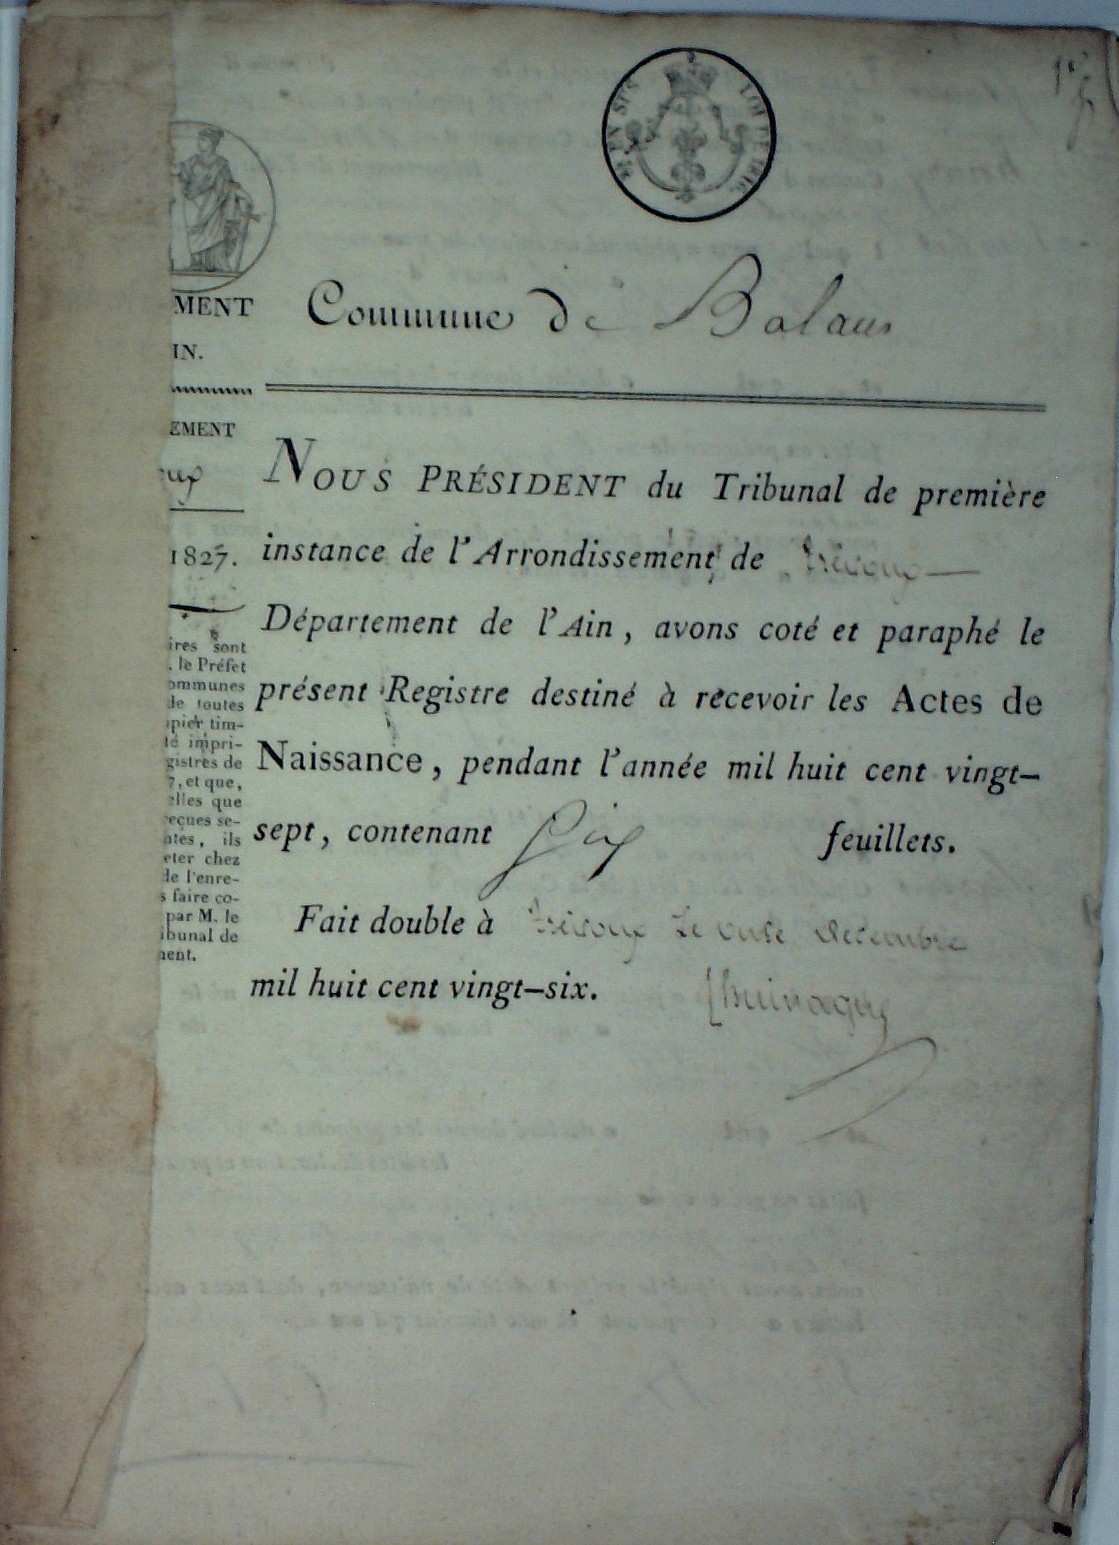 Commune de Balan
MENT
IN.
EMENT
1827.
ires sont
. le Préfet
ommunes
de toutes
apier tim-
té impri-
gistres de
7, et que,
elles que
reçues se-
ntes, ils
eter chez
de l'enre-
s faire co-
par M. le
ibunal de
ment.
NOUS PRÉSIDENT du Tribunal de première
instance de l'Arrondissement de Trévoux
Département de l'Ain, avons coté et paraphé le
présent Registre destiné à recevoir les Actes de
Naissance, pendant l'année mil huit cent vingt-
sept, contenant Six feuillets.
Fait double à Trévoux le onze décembre
mil huit cent vingt-six.